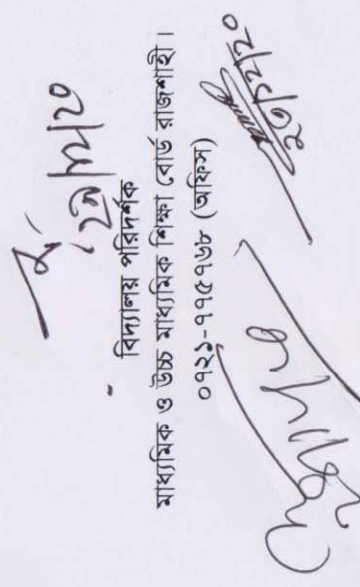 ২৯/১২/২০
বিদ্যালয় পরিদর্শক
মাধ্যমিক ও উচ্চ মাধ্যমিক শিক্ষা বোর্ড রাজশাহী।
০৭২১-৭৭৫৭৬৮ (অফিস)
২৩/১২/২০